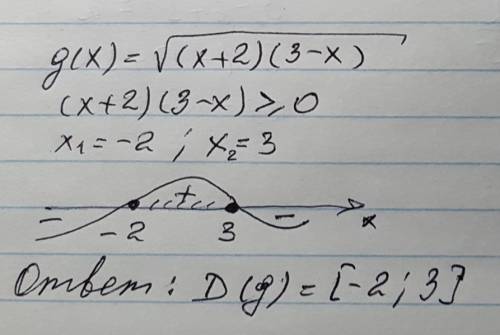 g(x) = √(x+2)(3-x)
(x+2)(3-x) ⩾ 0
x₁ = -2 ; x₂ = 3
- + -
-2 3 x
Ответ: D(g) = [-2; 3]